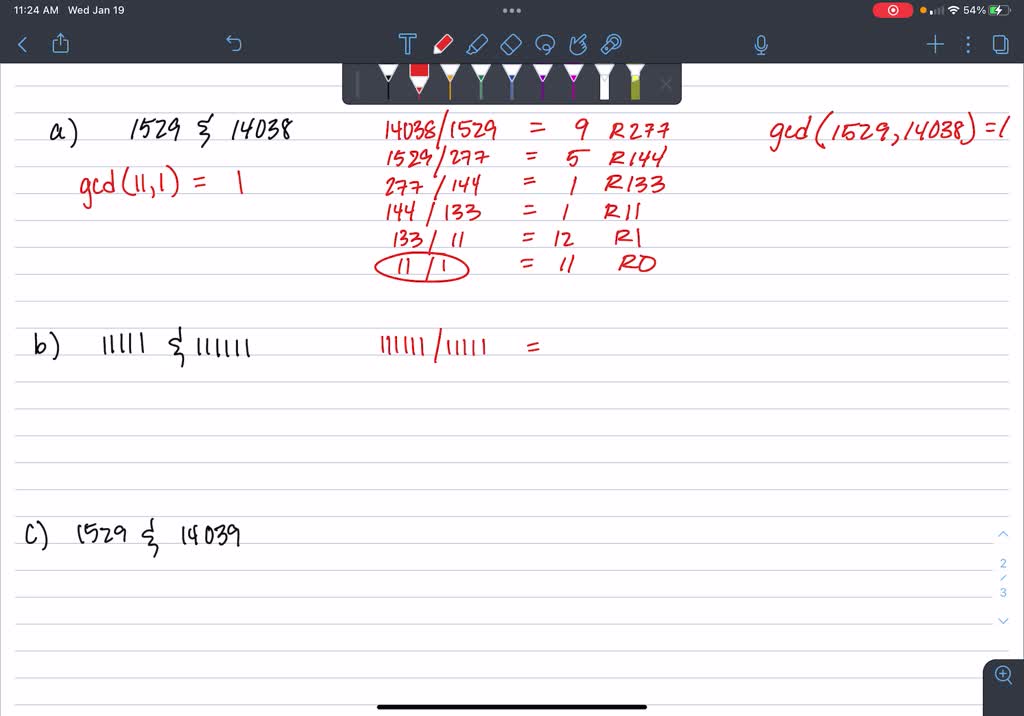 11:24 AM Wed Jan 19
54%
a) 1529 & 14038
14038/1529 = 9 R277
gcd(1529,14038)=1
1529/277 = 5 R144
gcd(11,1) = 1
277/144 = 1 R133
144/133 = 1 R11
133/11 = 12 R1
11/1 = 11 R0
b) 11111 & 111111
111111/11111 =
c) 1529 & 14039
2/3